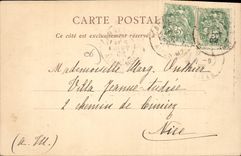 CARTE POSTALE
Ce côté est exclusivement réservé à
Mademoiselle Marg. Outhier
Villa Jeanne-Louise
2 chemin de Cimiez
Nice
(A. M.)